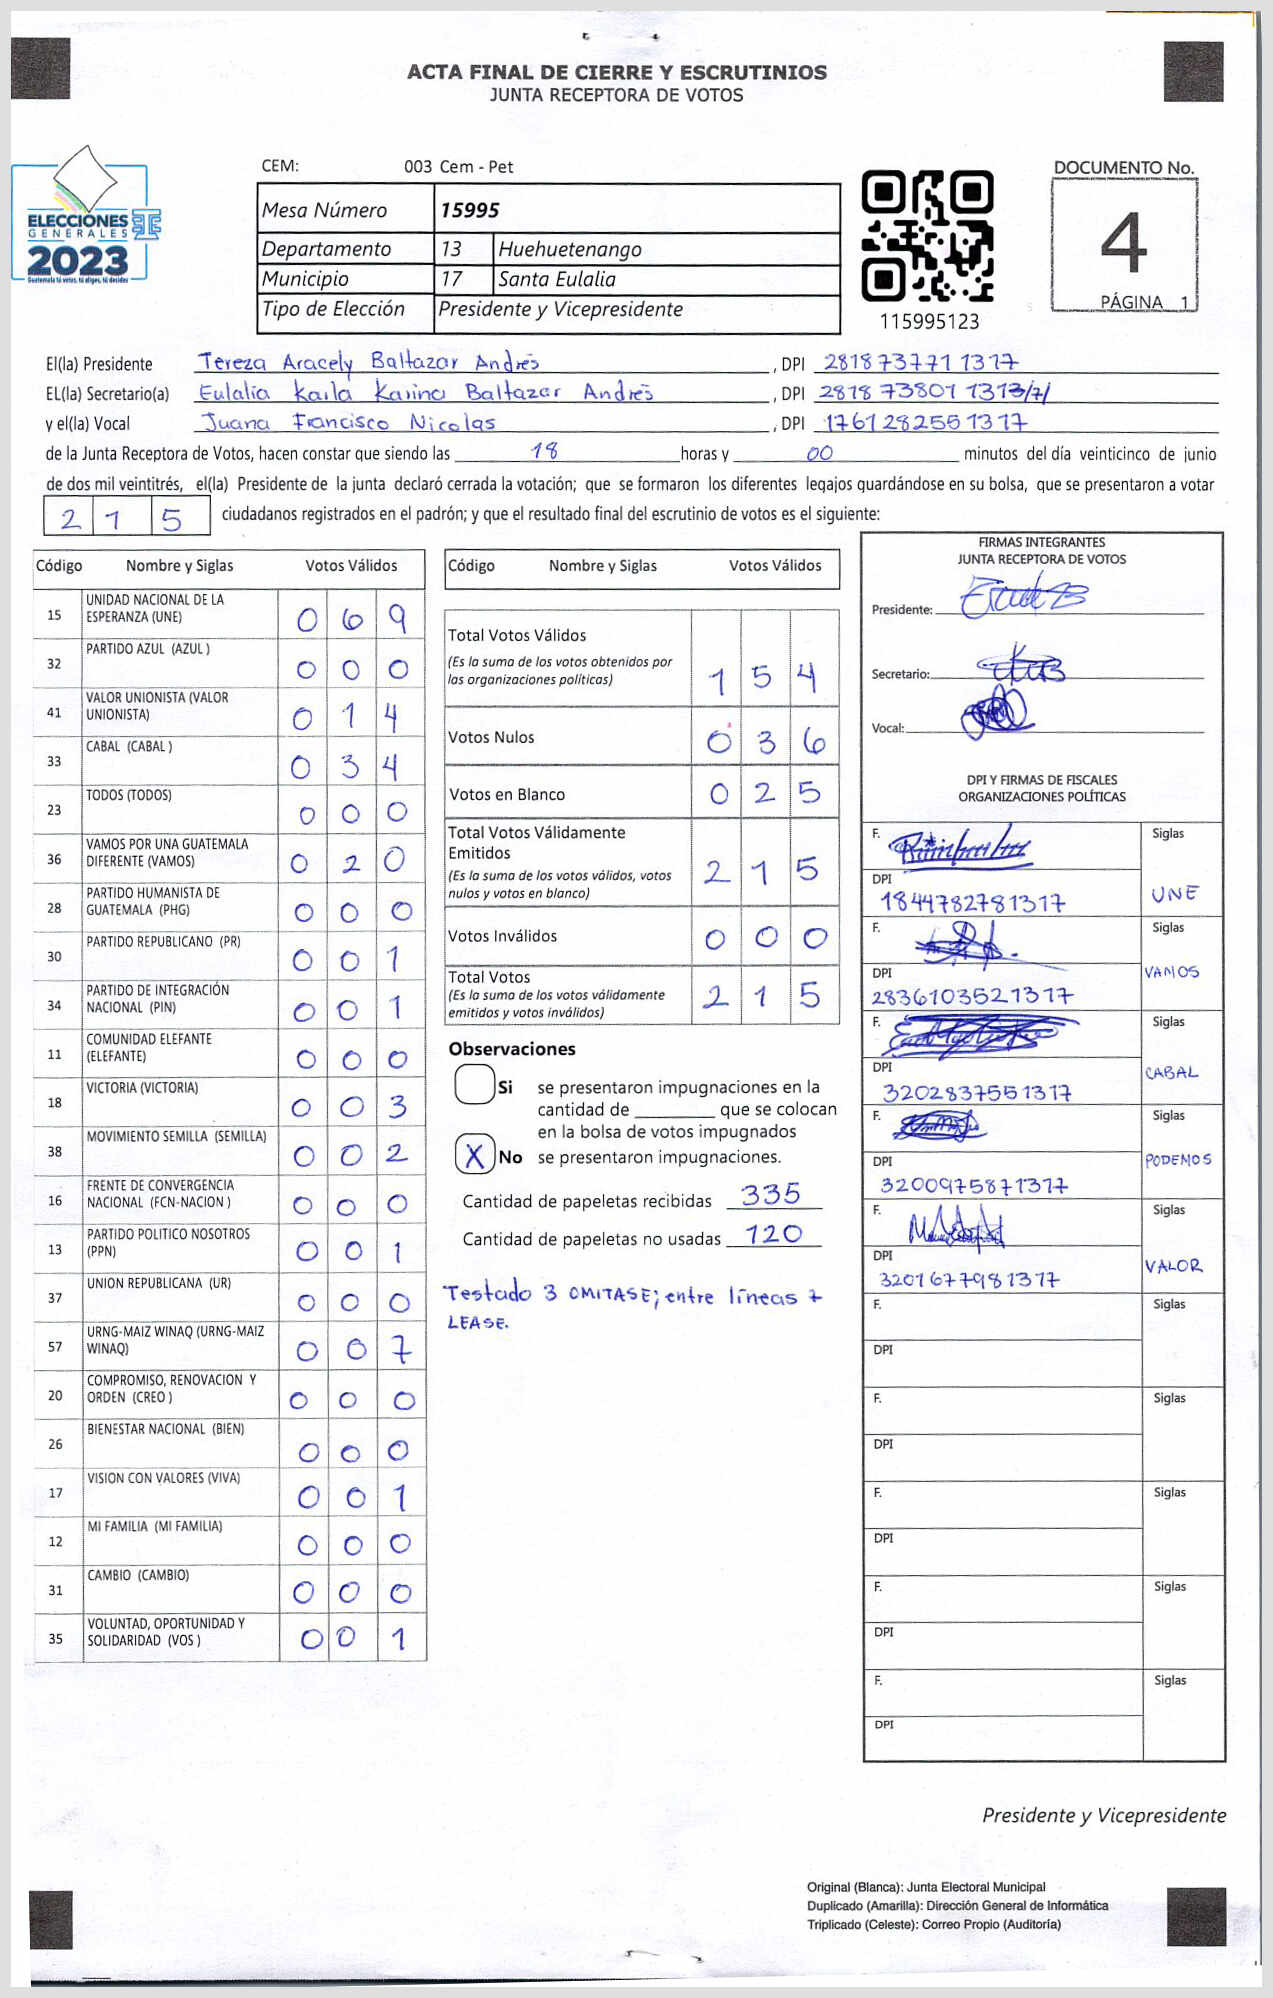 ACTA FINAL DE CIERRE Y ESCRUTINIOS
JUNTA RECEPTORA DE VOTOS
ELECCIONES
GENERALES
2023
Guatemala tú votas, tú eliges, tú decides
CEM: 003 Cem - Pet
Mesa Número 15995
Departamento 13 Huehuetenango
Municipio 17 Santa Eulalia
Tipo de Elección Presidente y Vicepresidente
115995123
DOCUMENTO No.
4
PÁGINA 1
El(la) Presidente Tereza Aracely Baltazar Andrés, DPI 2818737711317
EL(la) Secretario(a) Eulalia Karla Karina Baltazar Andrés, DPI 2818 73801 1313/7/
y el(la) Vocal Juana Francisco Nicolas, DPI 1761282551317
de la Junta Receptora de Votos, hacen constar que siendo las 18 horas y 00 minutos del día veinticinco de junio
de dos mil veintitrés, el(la) Presidente de la junta declaró cerrada la votación; que se formaron los diferentes legajos guardándose en su bolsa, que se presentaron a votar
2 1 5 ciudadanos registrados en el padrón; y que el resultado final del escrutinio de votos es el siguiente:
Código Nombre y Siglas Votos Válidos
15 UNIDAD NACIONAL DE LA ESPERANZA (UNE) 0 6 9
32 PARTIDO AZUL (AZUL ) 0 0 0
41 VALOR UNIONISTA (VALOR UNIONISTA) 0 1 4
33 CABAL (CABAL ) 0 3 4
23 TODOS (TODOS) 0 0 0
36 VAMOS POR UNA GUATEMALA DIFERENTE (VAMOS) 0 2 0
28 PARTIDO HUMANISTA DE GUATEMALA (PHG) 0 0 0
30 PARTIDO REPUBLICANO (PR) 0 0 1
34 PARTIDO DE INTEGRACIÓN NACIONAL (PIN) 0 0 1
11 COMUNIDAD ELEFANTE (ELEFANTE) 0 0 0
18 VICTORIA (VICTORIA) 0 0 3
38 MOVIMIENTO SEMILLA (SEMILLA) 0 0 2
16 FRENTE DE CONVERGENCIA NACIONAL (FCN-NACION ) 0 0 0
13 PARTIDO POLITICO NOSOTROS (PPN) 0 0 1
37 UNION REPUBLICANA (UR) 0 0 0
57 URNG-MAIZ WINAQ (URNG-MAIZ WINAQ) 0 0 7
20 COMPROMISO, RENOVACION Y ORDEN (CREO ) 0 0 0
26 BIENESTAR NACIONAL (BIEN) 0 0 0
17 VISION CON VALORES (VIVA) 0 0 1
12 MI FAMILIA (MI FAMILIA) 0 0 0
31 CAMBIO (CAMBIO) 0 0 0
35 VOLUNTAD, OPORTUNIDAD Y SOLIDARIDAD (VOS ) 0 0 1
Código Nombre y Siglas Votos Válidos
Total Votos Válidos
(Es la suma de los votos obtenidos por
las organizaciones políticas) 1 5 4
Votos Nulos 0 3 6
Votos en Blanco 0 2 5
Total Votos Válidamente
Emitidos
(Es la suma de los votos válidos, votos
nulos y votos en blanco) 2 1 5
Votos Inválidos 0 0 0
Total Votos
(Es la suma de los votos válidamente
emitidos y votos inválidos) 2 1 5
Observaciones
Si se presentaron impugnaciones en la
cantidad de ________ que se colocan
en la bolsa de votos impugnados
X No se presentaron impugnaciones.
Cantidad de papeletas recibidas 335
Cantidad de papeletas no usadas 120
Testado 3 OMITASE; entre líneas 7
LEASE.
FIRMAS INTEGRANTES
JUNTA RECEPTORA DE VOTOS
Presidente:
Secretario:
Vocal:
DPI Y FIRMAS DE FISCALES
ORGANIZACIONES POLÍTICAS
F. Siglas
DPI 1844782781317 UNE
F. Siglas
DPI 2836103521317 VAMOS
F. Siglas
DPI 3202837551317 CABAL
F. Siglas
DPI 3200975871317 PODEMOS
F. Siglas
DPI 3201677981317 VALOR
F. Siglas
DPI
F. Siglas
DPI
F. Siglas
DPI
F. Siglas
DPI
F. Siglas
DPI
Presidente y Vicepresidente
Original (Blanca): Junta Electoral Municipal
Duplicado (Amarilla): Dirección General de Informática
Triplicado (Celeste): Correo Propio (Auditoría)